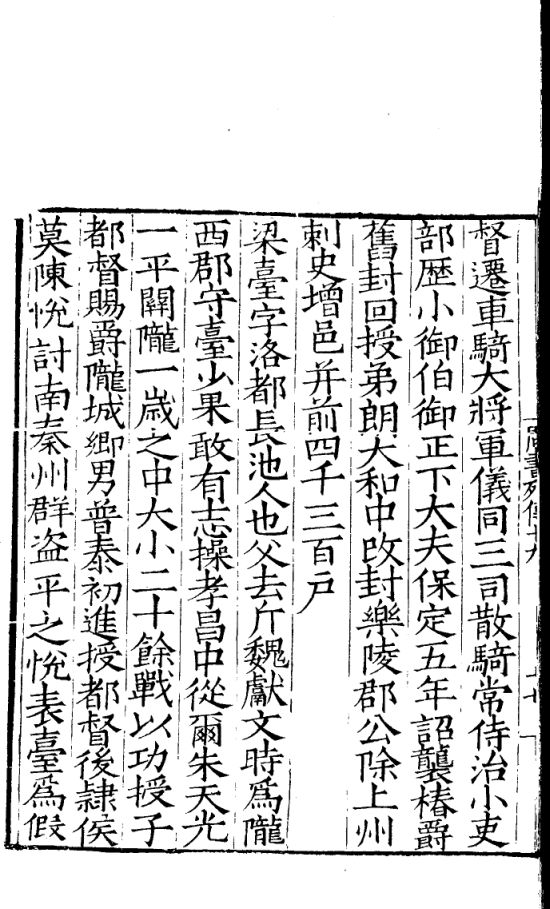 督遷車騎大將軍儀同三司散騎常侍治小吏
部歷小御伯御正下大夫保定五年詔襲椿爵
舊封回授弟朗大和中改封樂陵郡公除上州
刺史增邑并前四千三百戶
梁臺字洛都長池人也父去斤魏獻文時爲隴
西郡守臺少果敢有志操孝昌中從爾朱天光
一平關隴一歲之中大小二十餘戰以功授子
都督賜爵隴城鄉男普泰初進授都督後隷侯
莫陳悅討南秦州群盜平之悅表臺爲假